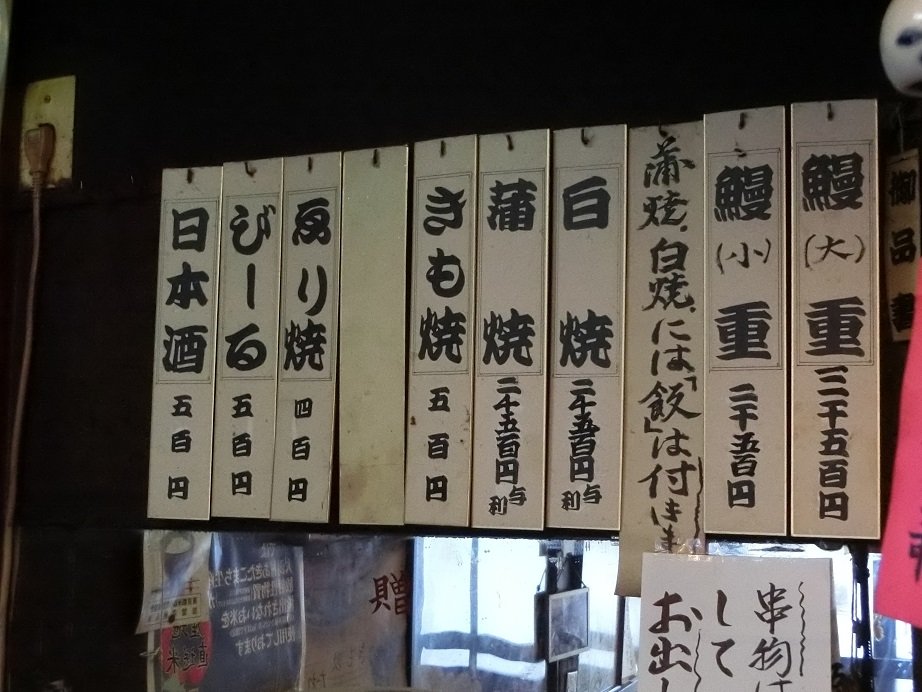 御品書
鰻(大)重 三千五百円
鰻(小)重 二千五百円
蒲焼、白焼、には「飯」は付きま
白焼 二千五百円与利
蒲焼 二千五百円与利
きも焼 五百円
ゑり焼 四百円
びーる 五百円
日本酒 五百円
串物は
して
お出し
贈